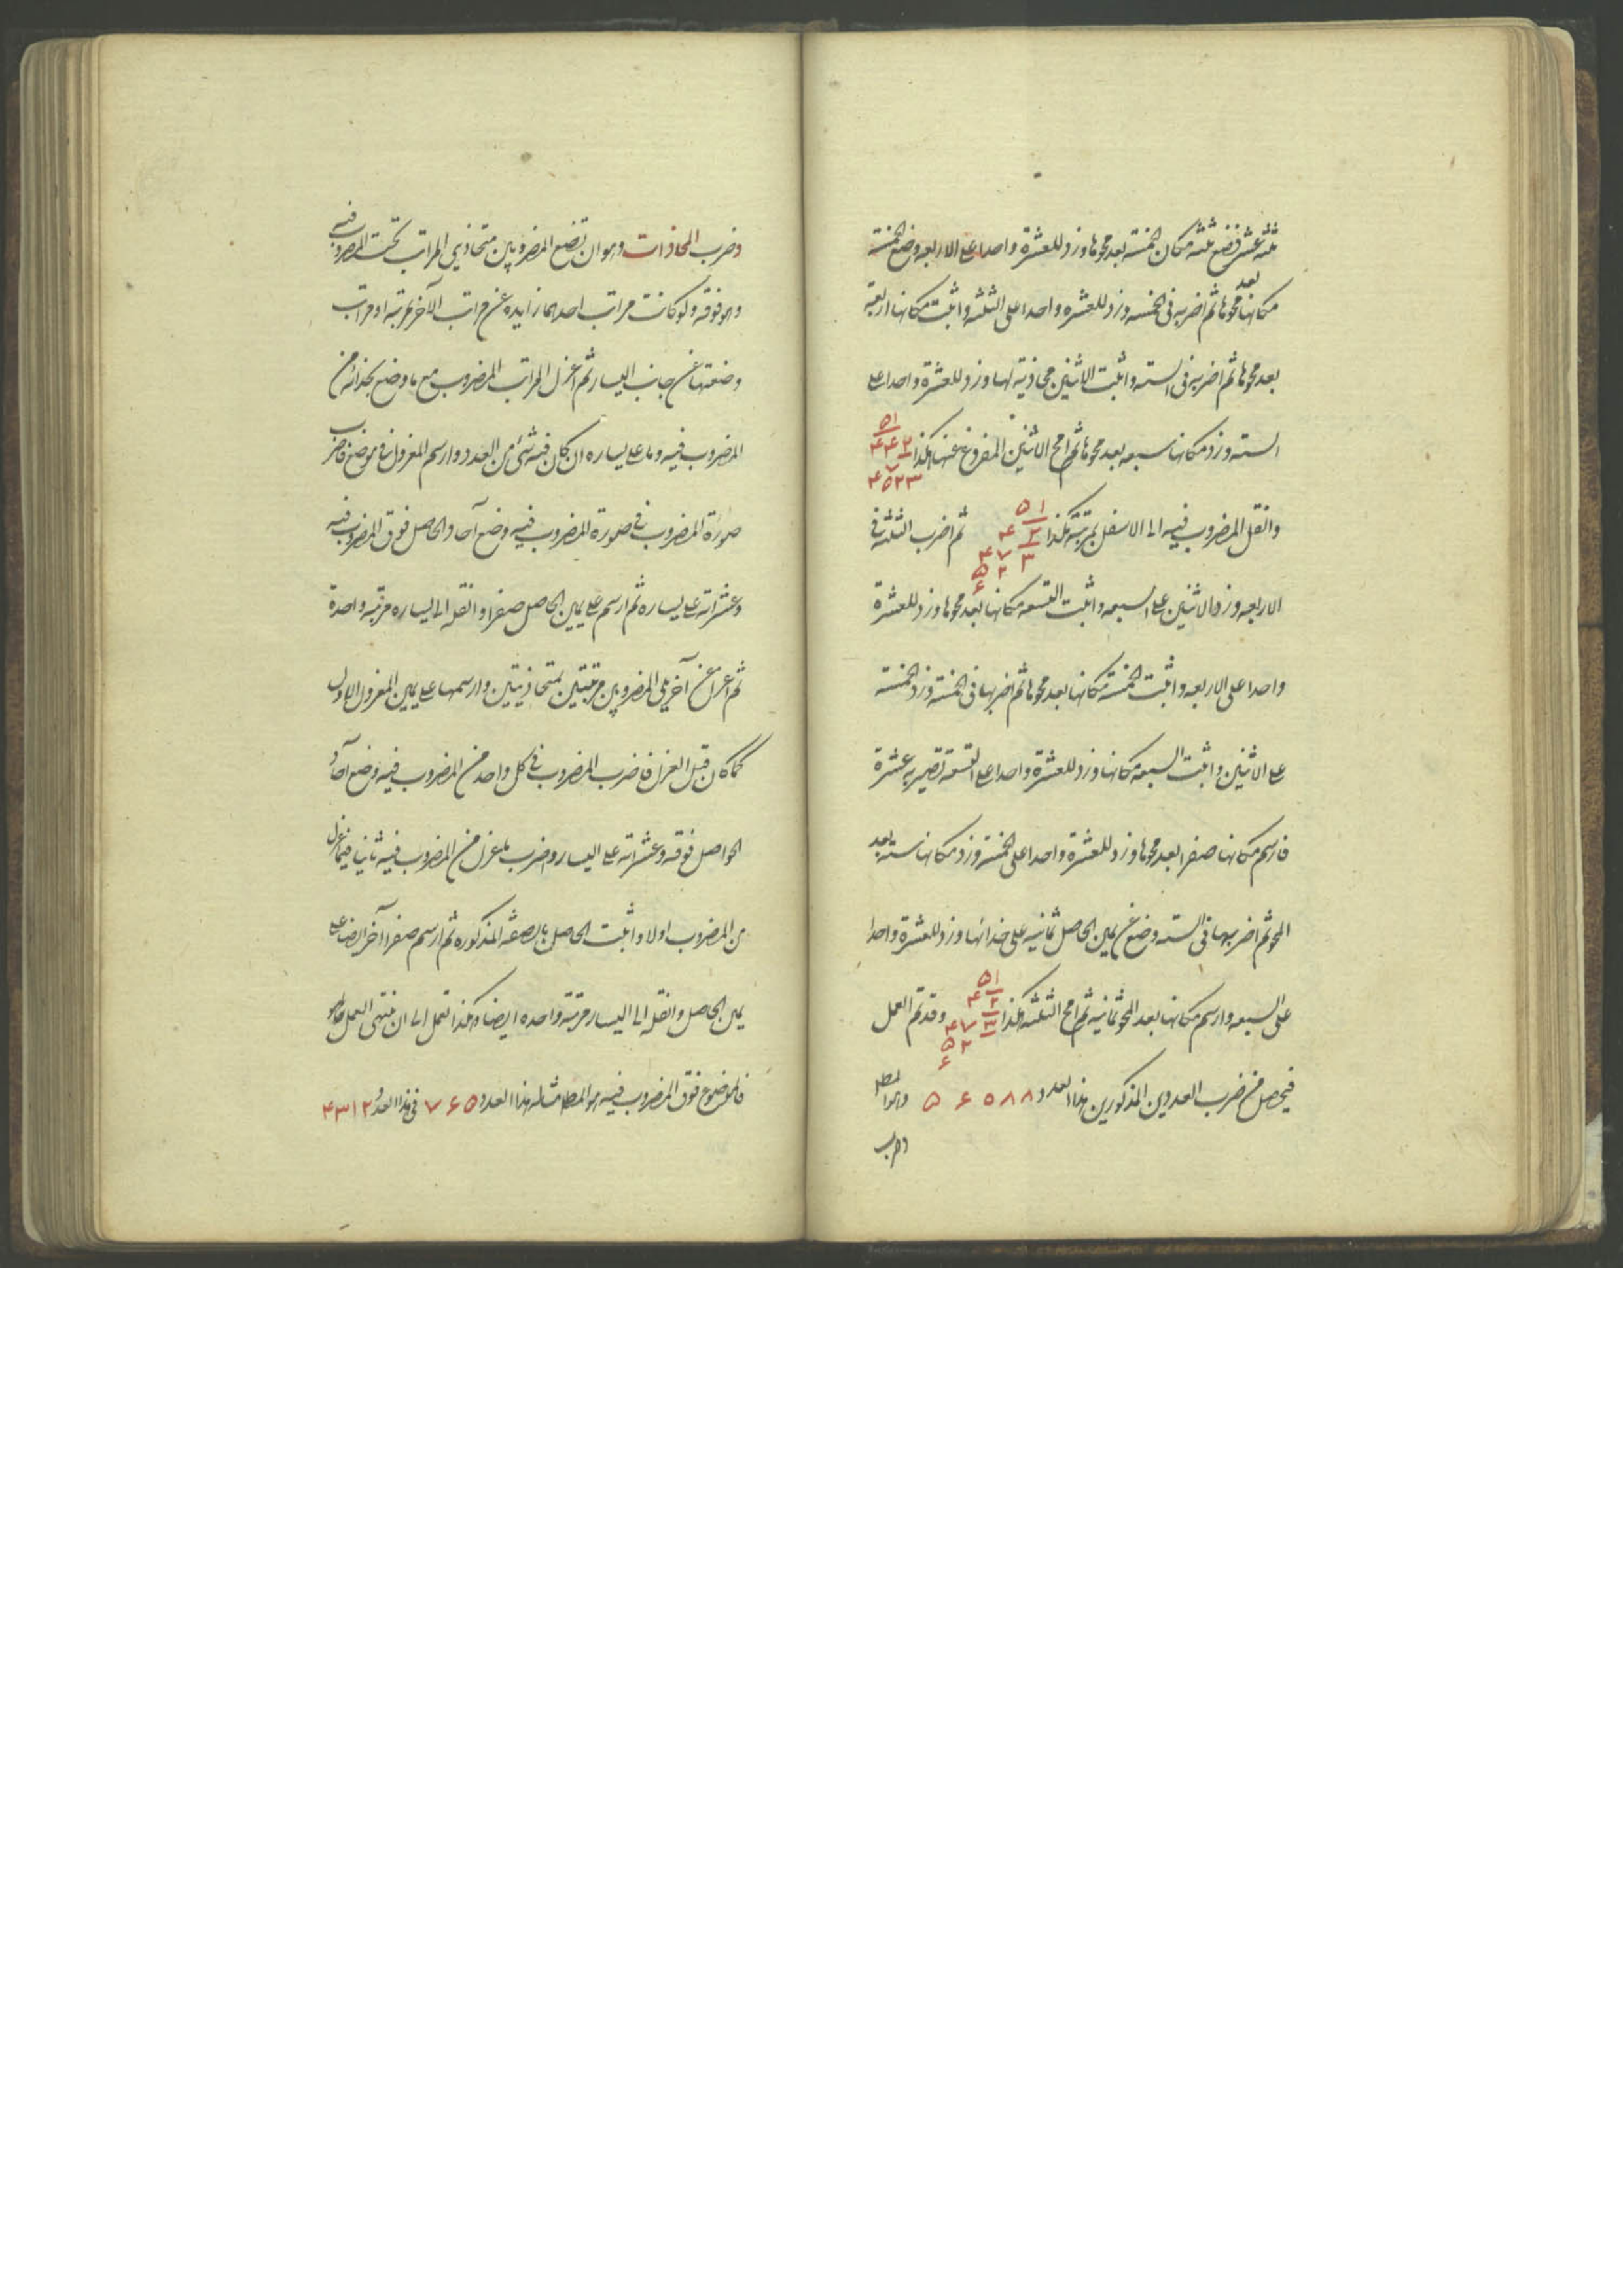 ثلثه عشر فضع ثلثه مكان الخمسة بعد محوها وزد للعشرة واحدا على الاربعه وضع الخمسة
مكانها بعد محوها ثم اضربه فى الخمسه وزد للعشره واحدا على الثلثه واثبت مكانها اربعة
بعد محوها ثم اضربه فى الستة واثبت الاثنين محاذية لها وزد للعشرة واحدا على
الستة وزد مكانها سبعه بعد محوها ثم امح الاثنين المفروغ عنها هكذا
وانقل المضروب فيه الى الاسفل بمرتبة هكذا ثم اضرب الثلثة فى
الاربعه وزد الاثنين على السبعه واثبت التسعه مكانها بعد محوها وزد للعشرة
واحدا على الاربعه واثبت الخمسة مكانها بعد محوها ثم اضربها فى الخمسة وزد الخمسة
على الاثنين واثبت السبعه مكانها وزد للعشرة واحدا على التسعة تصير به عشرة
فارسم مكانها صفرا بعد محوها وزد للعشرة واحدا على الخمسة وزد مكانها سته بعد
المحو ثم اضربها فى الستة وضع عن يمين الحاصل ثمانيه على حذائها وزد للعشرة واحدا
على السبعه وارسم مكانها بعد المحو ثمانيه ثم امح الثلثه هكذا وقد تم العمل
فيحصل من ضرب العددين المذكورين هذا العدد ۵ ۶ ۵ ۸ ۸ وهو المط
وضرب
وضرب المحاذات وهو ان تضع المضروبين متحاذيي المراتب تحت المضروب فيه
وهو فوقه ولو كانت مراتب احدهما زايده عن مراتب الآخر بمرتبة او مراتب
وضعتها عن جانب اليسار ثم اعزل المراتب المضروب مع ما وضع بحذائه من
المضروب فيه وما على يساره ان كان فيه شئ من العدد وارسم المعزول فى موضع فاضرب
صورة المضروب فى صورة المضروب فيه وضع آحاد الحاصل فوق المضروب فيه
وعشراته على يساره ثم ارسم على يمين الحاصل صفرا وانقله الى يساره مرتبة واحدة
ثم اعزل عن آخر يلى المضروبين مرتبتين متحاذيتين وارسمها على يمين المعزول الاول
كما كان قبل العزل فاضرب المضروب فى كل واحد من المضروب فيه وضع آحاد
الحواصل فوقه وعشراته على اليسار واضرب ما عزل من المضروب فيه ثانيا فيما عزل
من المضروب اولا واثبت الحاصل بالصفة المذكوره ثم ارسم صفرا آخر ايضا على
يمين الحاصل وانقله الى اليسار مرتبة واحده ايضا وهكذا تعمل الى ان ينتهى العمل
فالموضوع فوق المضروب فيه هو المط مثاله هذا العدد ۷۶۵ فى هذا العدد ۴۳۱۲